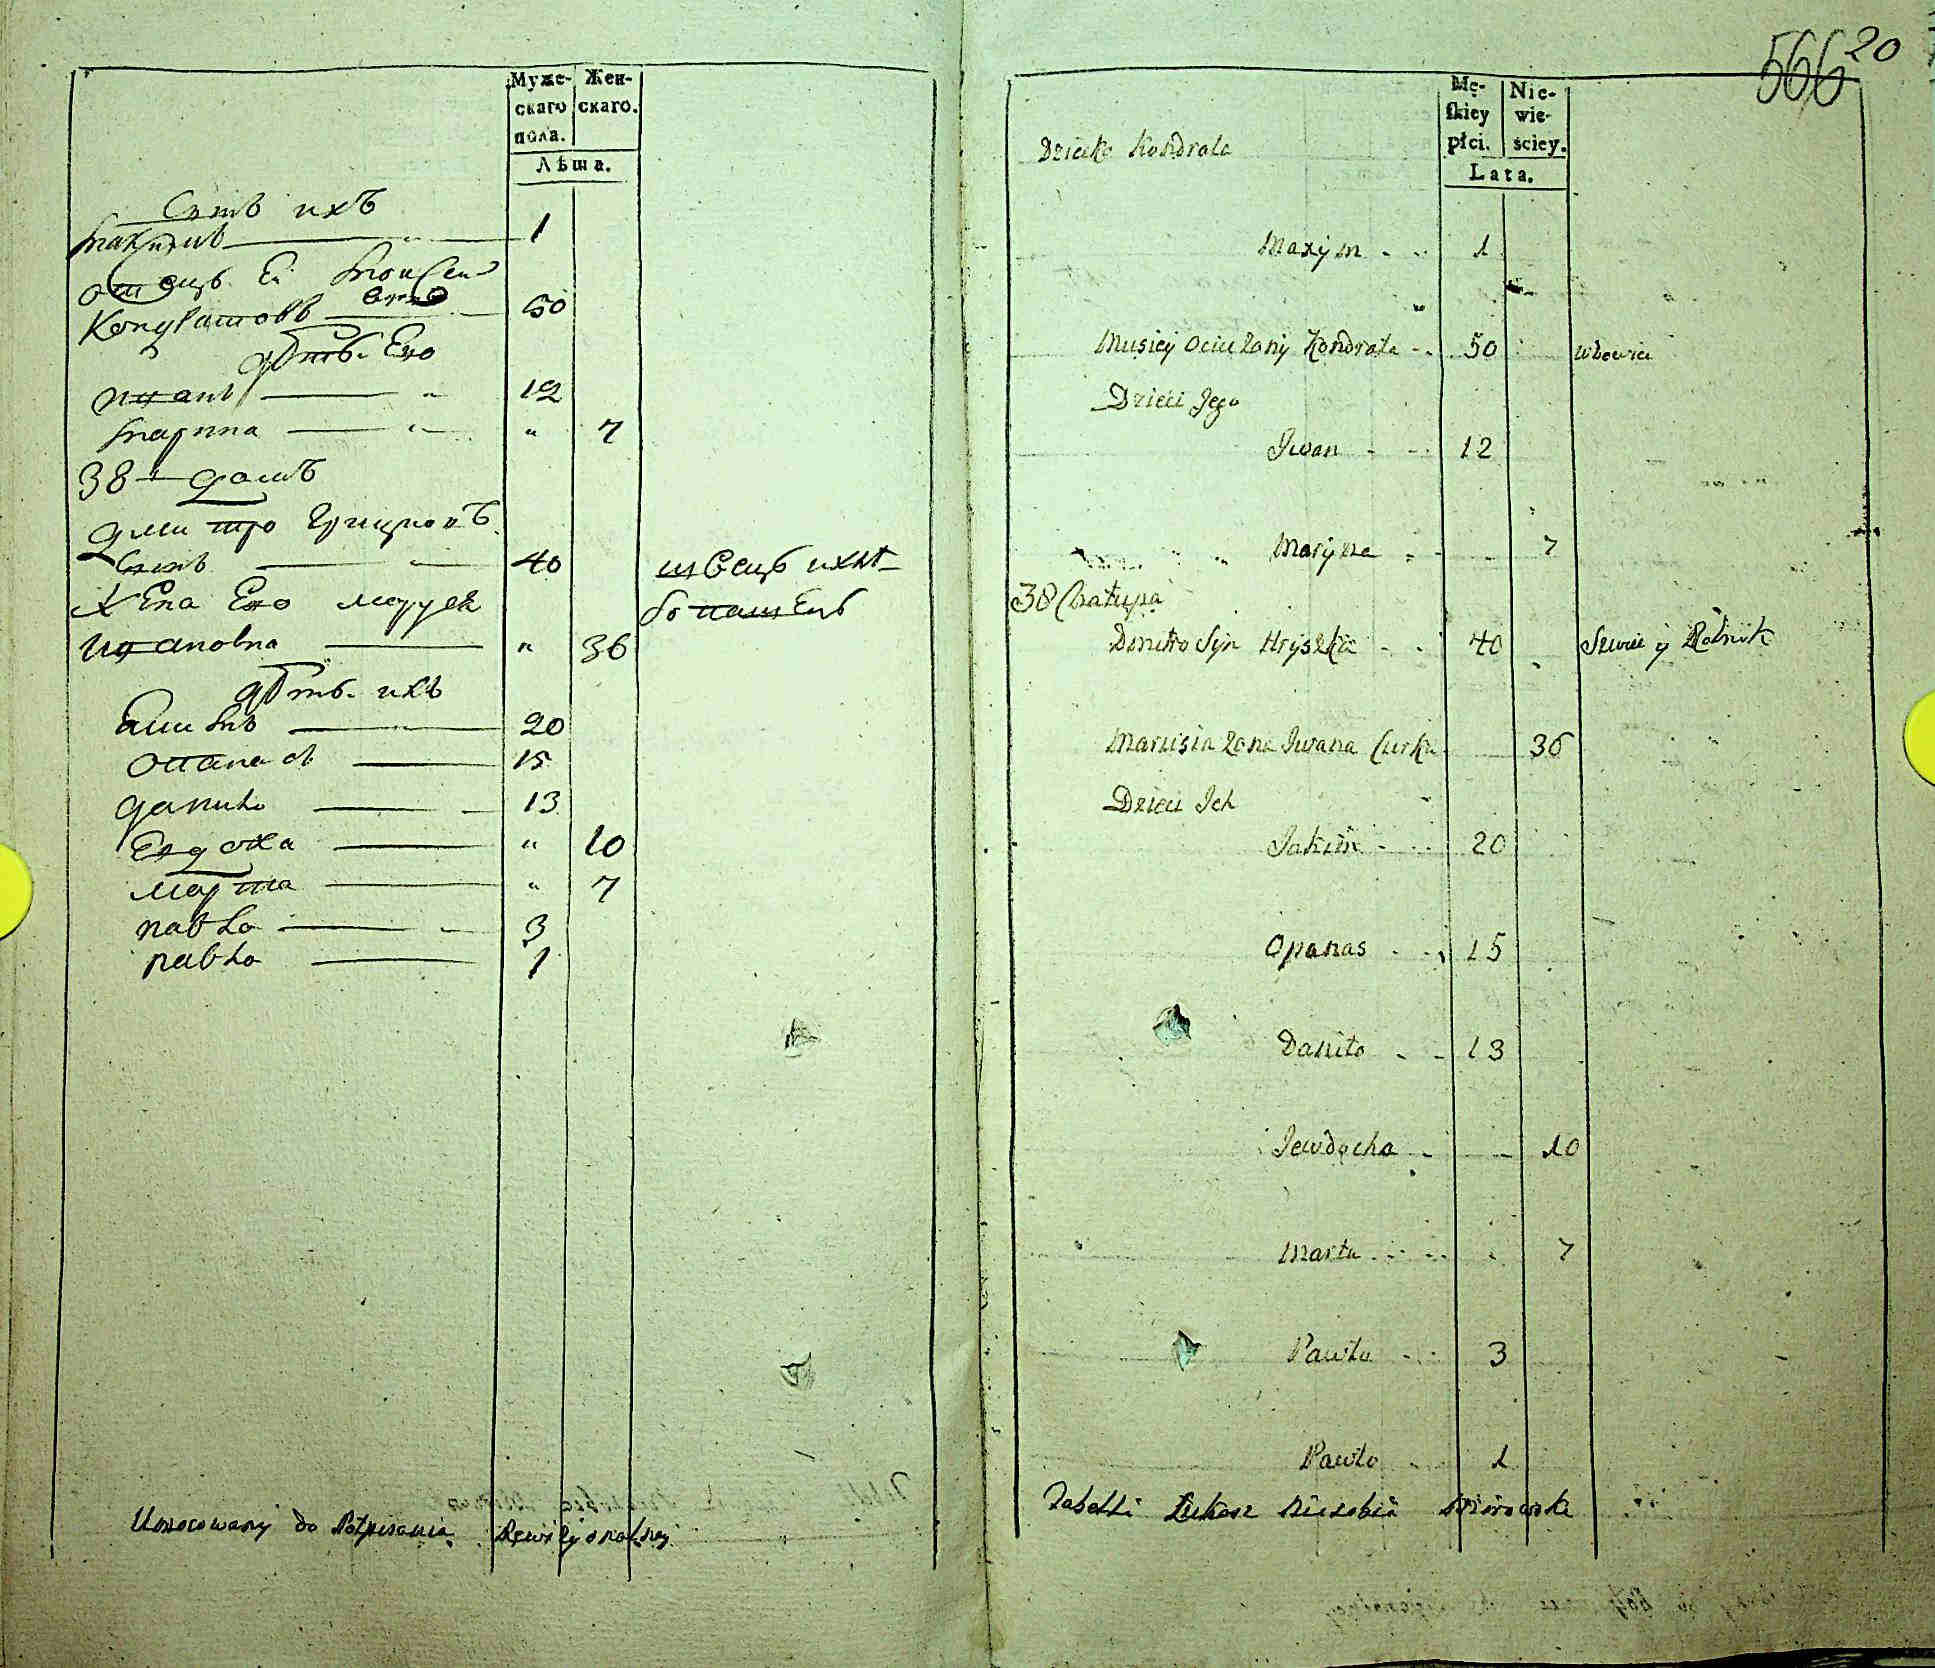 Муже-
скаго
пола.
Жен-
скаго.
Лѣта.
Сынъ ихъ
Максимъ 1
отецъ Ея Мойсей
Кондратовъ 50
дѣти Его
Иванъ 12
Марина " 7
38 домъ
дмитро Грицковъ
Сынъ 40 швецъ и хлѣ-
бопашецъ
Жена Его маруся
Ивановна " 36
дѣти ихъ
Якимъ 20
Опанасъ 15
данило 13
Евдоха " 10
марта " 7
павло 3
павло 1
Umocowany do Potpisania Rewizyonalney
566 20
Mę-
skiey
płci.
Nie-
wie-
ściey.
Lata.
Dziecko Kondrata
Maxym 1
Musiey Ociec Zony Kondrata 50 wdowiec
Dzieci Jego
Iwan 12
Maryna 7
38 Chałupa
Dmitro Syn Hryszka 40 Szwiec y Rolnik
Marusia Zona Iwana Curka 36
Dzieci Ich
Jakim 20
Opanas 15
Daniło 13
Jewdocha 10
Marta 7
Pawło 3
Pawło 1
Tabelli Łukasz